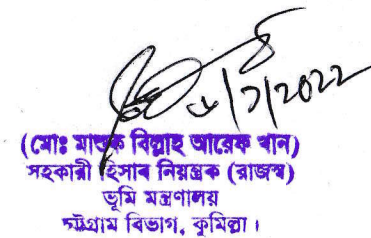 ৬/7/2022
(মোঃ মাশুক বিল্লাহ আরেফ খান)
সহকারী হিসাব নিয়ন্ত্রক (রাজস্ব)
ভূমি মন্ত্রণালয়
চট্টগ্রাম বিভাগ, কুমিল্লা।